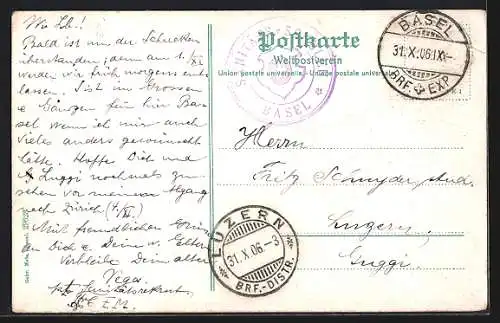 Postkarte
Weltpostverein
Union postale universelle. - Unione postale universale.
BASEL
31.X.06.IX-
BRF. EXP.
BASEL
LUZERN
31.X.06.-3
BRF.-DISTR.
Herrn
Fritz Schnyder, stud.
Luzern
Bald ist nun der Schrecken
überstanden; denn am 1./XI
werden wir früh morgens ent-
lassen. Ist im Grossen
Ganzen für hier Basel
wenn ich mir auch
vieles anders gewünscht
hätte. Hoffe Dich und
Luggi nochmals zu
sehen vor meinem Abgang
nach Zürich
Mit freundlichen Grüs-
sen Dich & Deine w. Eltern
Verbleibe Dein alter
Vega